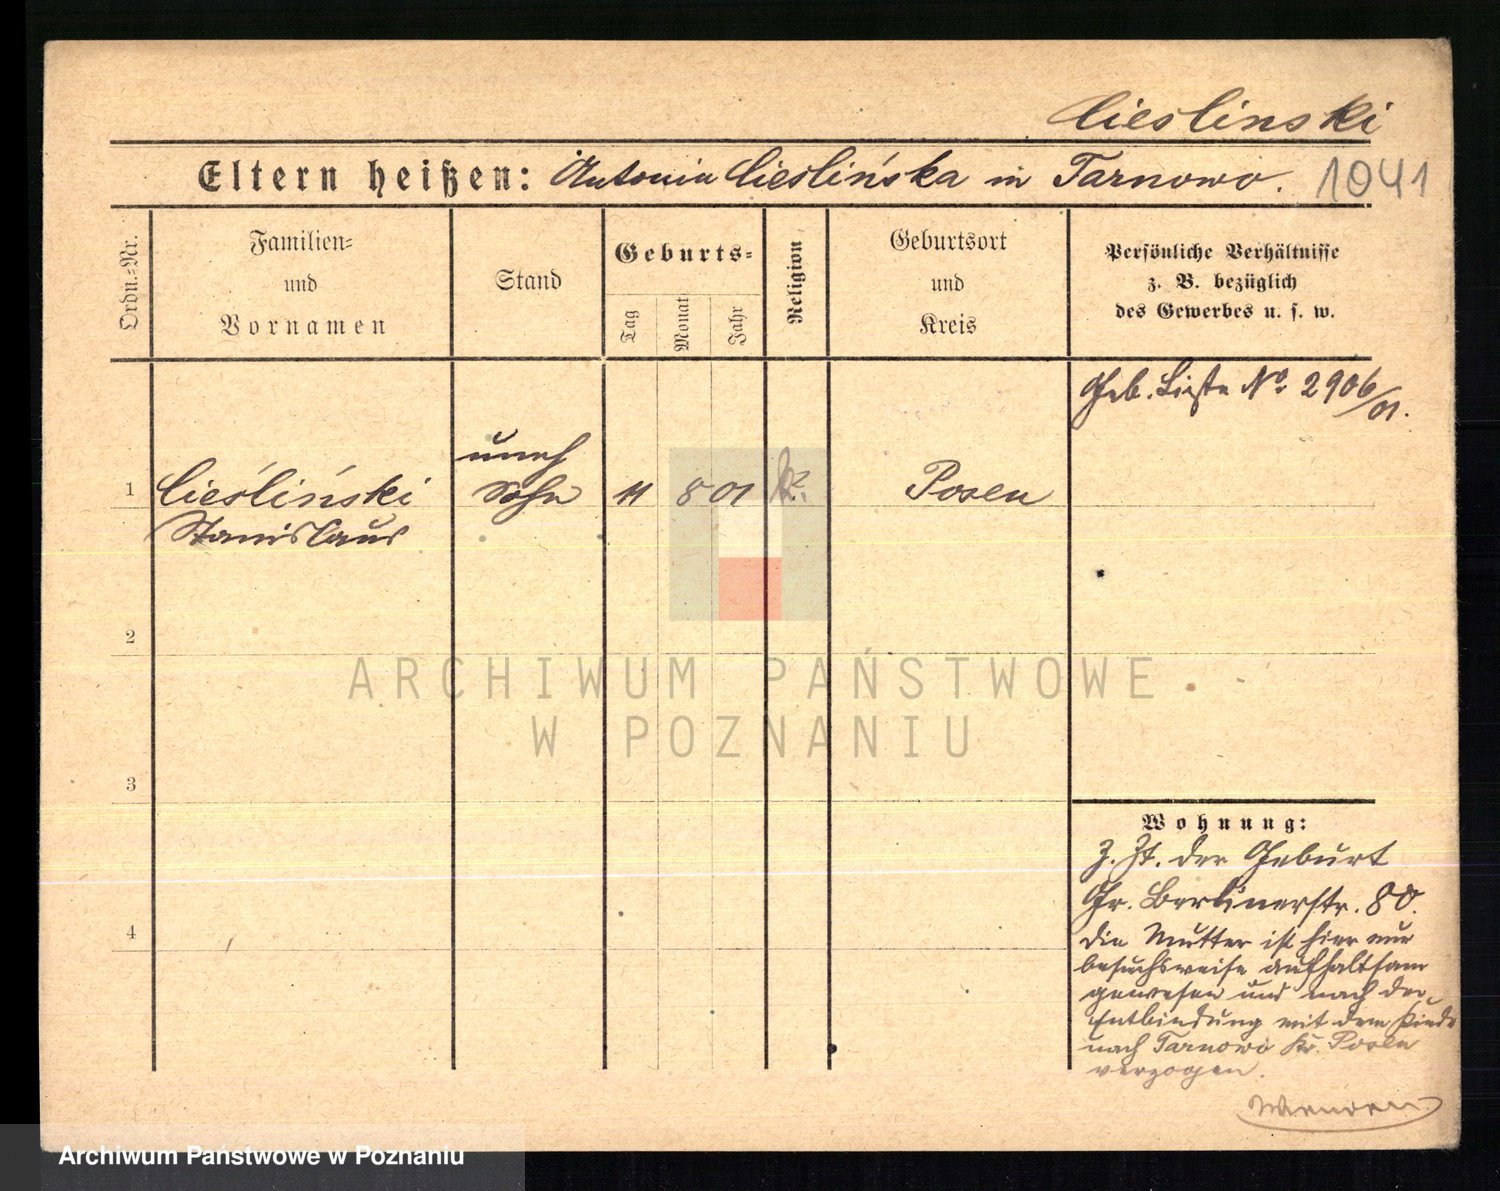 Cieslinski
Eltern heißen: Antonia Cieslińska in Tarnowo. 1041
Ordn.-Nr.
Familien-
und
Vornamen
Stand
Geburts-
Tag
Monat
Jahr
Religion
Geburtsort
und
Kreis
Persönliche Verhältnisse
z. B. bezüglich
des Gewerbes u. s. w.
Geb. Liste No. 2906/01.
uneh
1 Cieśliński Sohn 11 8 01 k. Posen
Stanislaus
2
3
4
Wohnung:
z. Zt. der Geburt
Gr. Berlinerstr. 80.
die Mutter ist hier nur
besuchsweise aufhaltsam
gewesen und nach der
Entbindung mit dem Kinde
nach Tarnowo Kr. Posen
verzogen.
ARCHIWUM PAŃSTWOWE
W POZNANIU
Archiwum Państwowe w Poznaniu